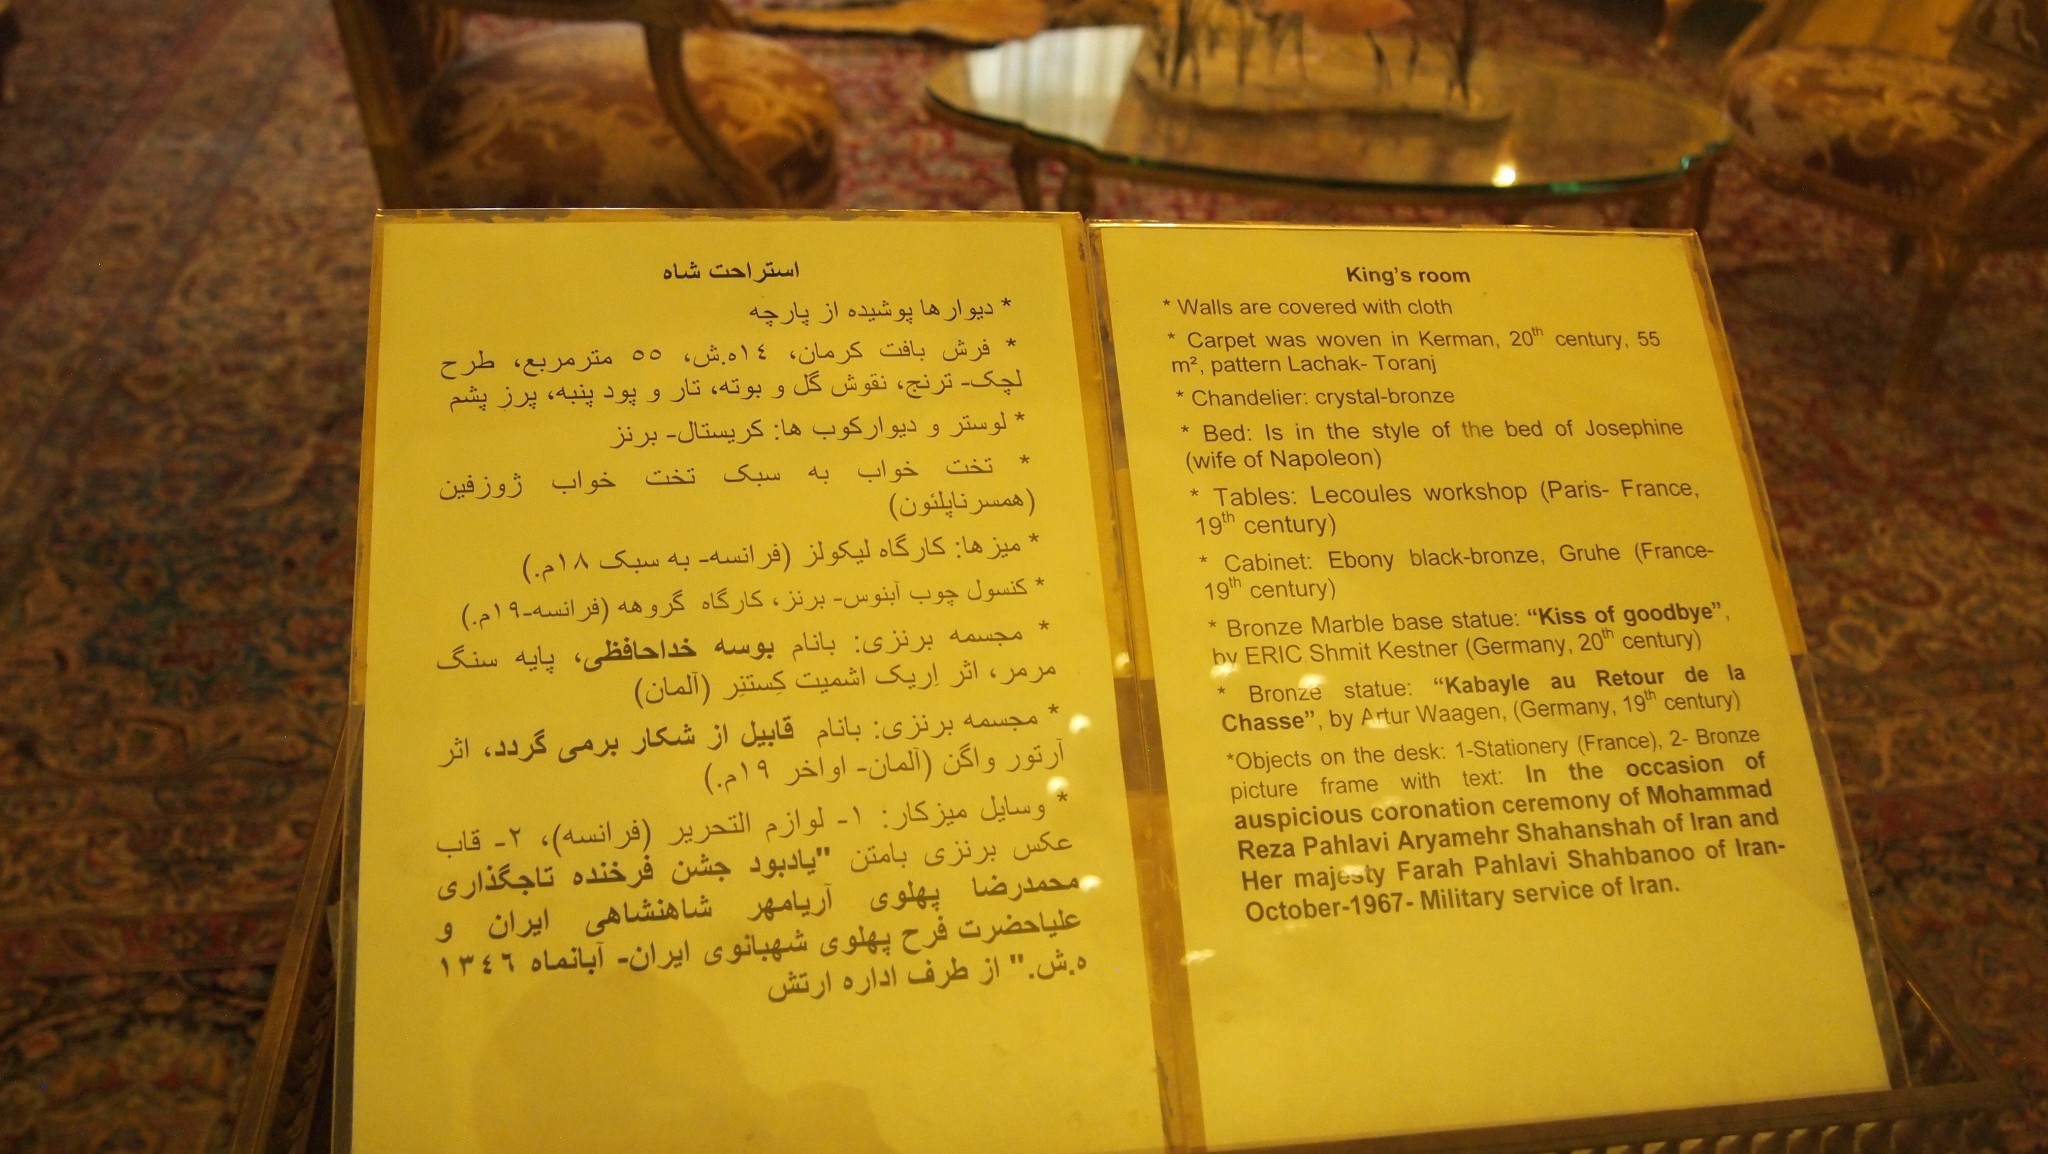 استراحت شاه
* دیوارها پوشیده از پارچه
* فرش بافت کرمان، ١٤ه.ش، ٥٥ مترمربع، طرح
لچک- ترنج، نقوش گل و بوته، تار و پود پنبه، پرز پشم
* لوستر و دیوارکوب ها: کریستال- برنز
* تخت خواب به سبک تخت خواب ژوزفین
(همسرناپلئون)
* میزها: کارگاه لیکولز (فرانسه- به سبک ١٨م.)
* کنسول چوب آبنوس- برنز، کارگاه گروهه (فرانسه-١٩م.)
* مجسمه برنزی: بانام بوسه خداحافظی، پایه سنگ
مرمر، اثر اِریک اشمیت کِستنِر (آلمان)
* مجسمه برنزی: بانام قابیل از شکار برمی گردد، اثر
آرتور واگن (آلمان- اواخر ١٩م.)
* وسایل میزکار: ١- لوازم التحریر (فرانسه)، ٢- قاب
عکس برنزی بامتن "یادبود جشن فرخنده تاجگذاری
محمدرضا پهلوی آریامهر شاهنشاهی ایران و
علیاحضرت فرح پهلوی شهبانوی ایران- آبانماه ١٣٤٦
ه.ش." از طرف اداره ارتش
King's room
* Walls are covered with cloth
* Carpet was woven in Kerman, 20th century, 55
m², pattern Lachak- Toranj
* Chandelier: crystal-bronze
* Bed: Is in the style of the bed of Josephine
(wife of Napoleon)
* Tables: Lecoules workshop (Paris- France,
19th century)
* Cabinet: Ebony black-bronze, Gruhe (France-
19th century)
* Bronze Marble base statue: “Kiss of goodbye”,
by ERIC Shmit Kestner (Germany, 20th century)
* Bronze statue: “Kabayle au Retour de la
Chasse”, by Artur Waagen, (Germany, 19th century)
*Objects on the desk: 1-Stationery (France), 2- Bronze
picture frame with text: In the occasion of
auspicious coronation ceremony of Mohammad
Reza Pahlavi Aryamehr Shahanshah of Iran and
Her majesty Farah Pahlavi Shahbanoo of Iran-
October-1967- Military service of Iran.